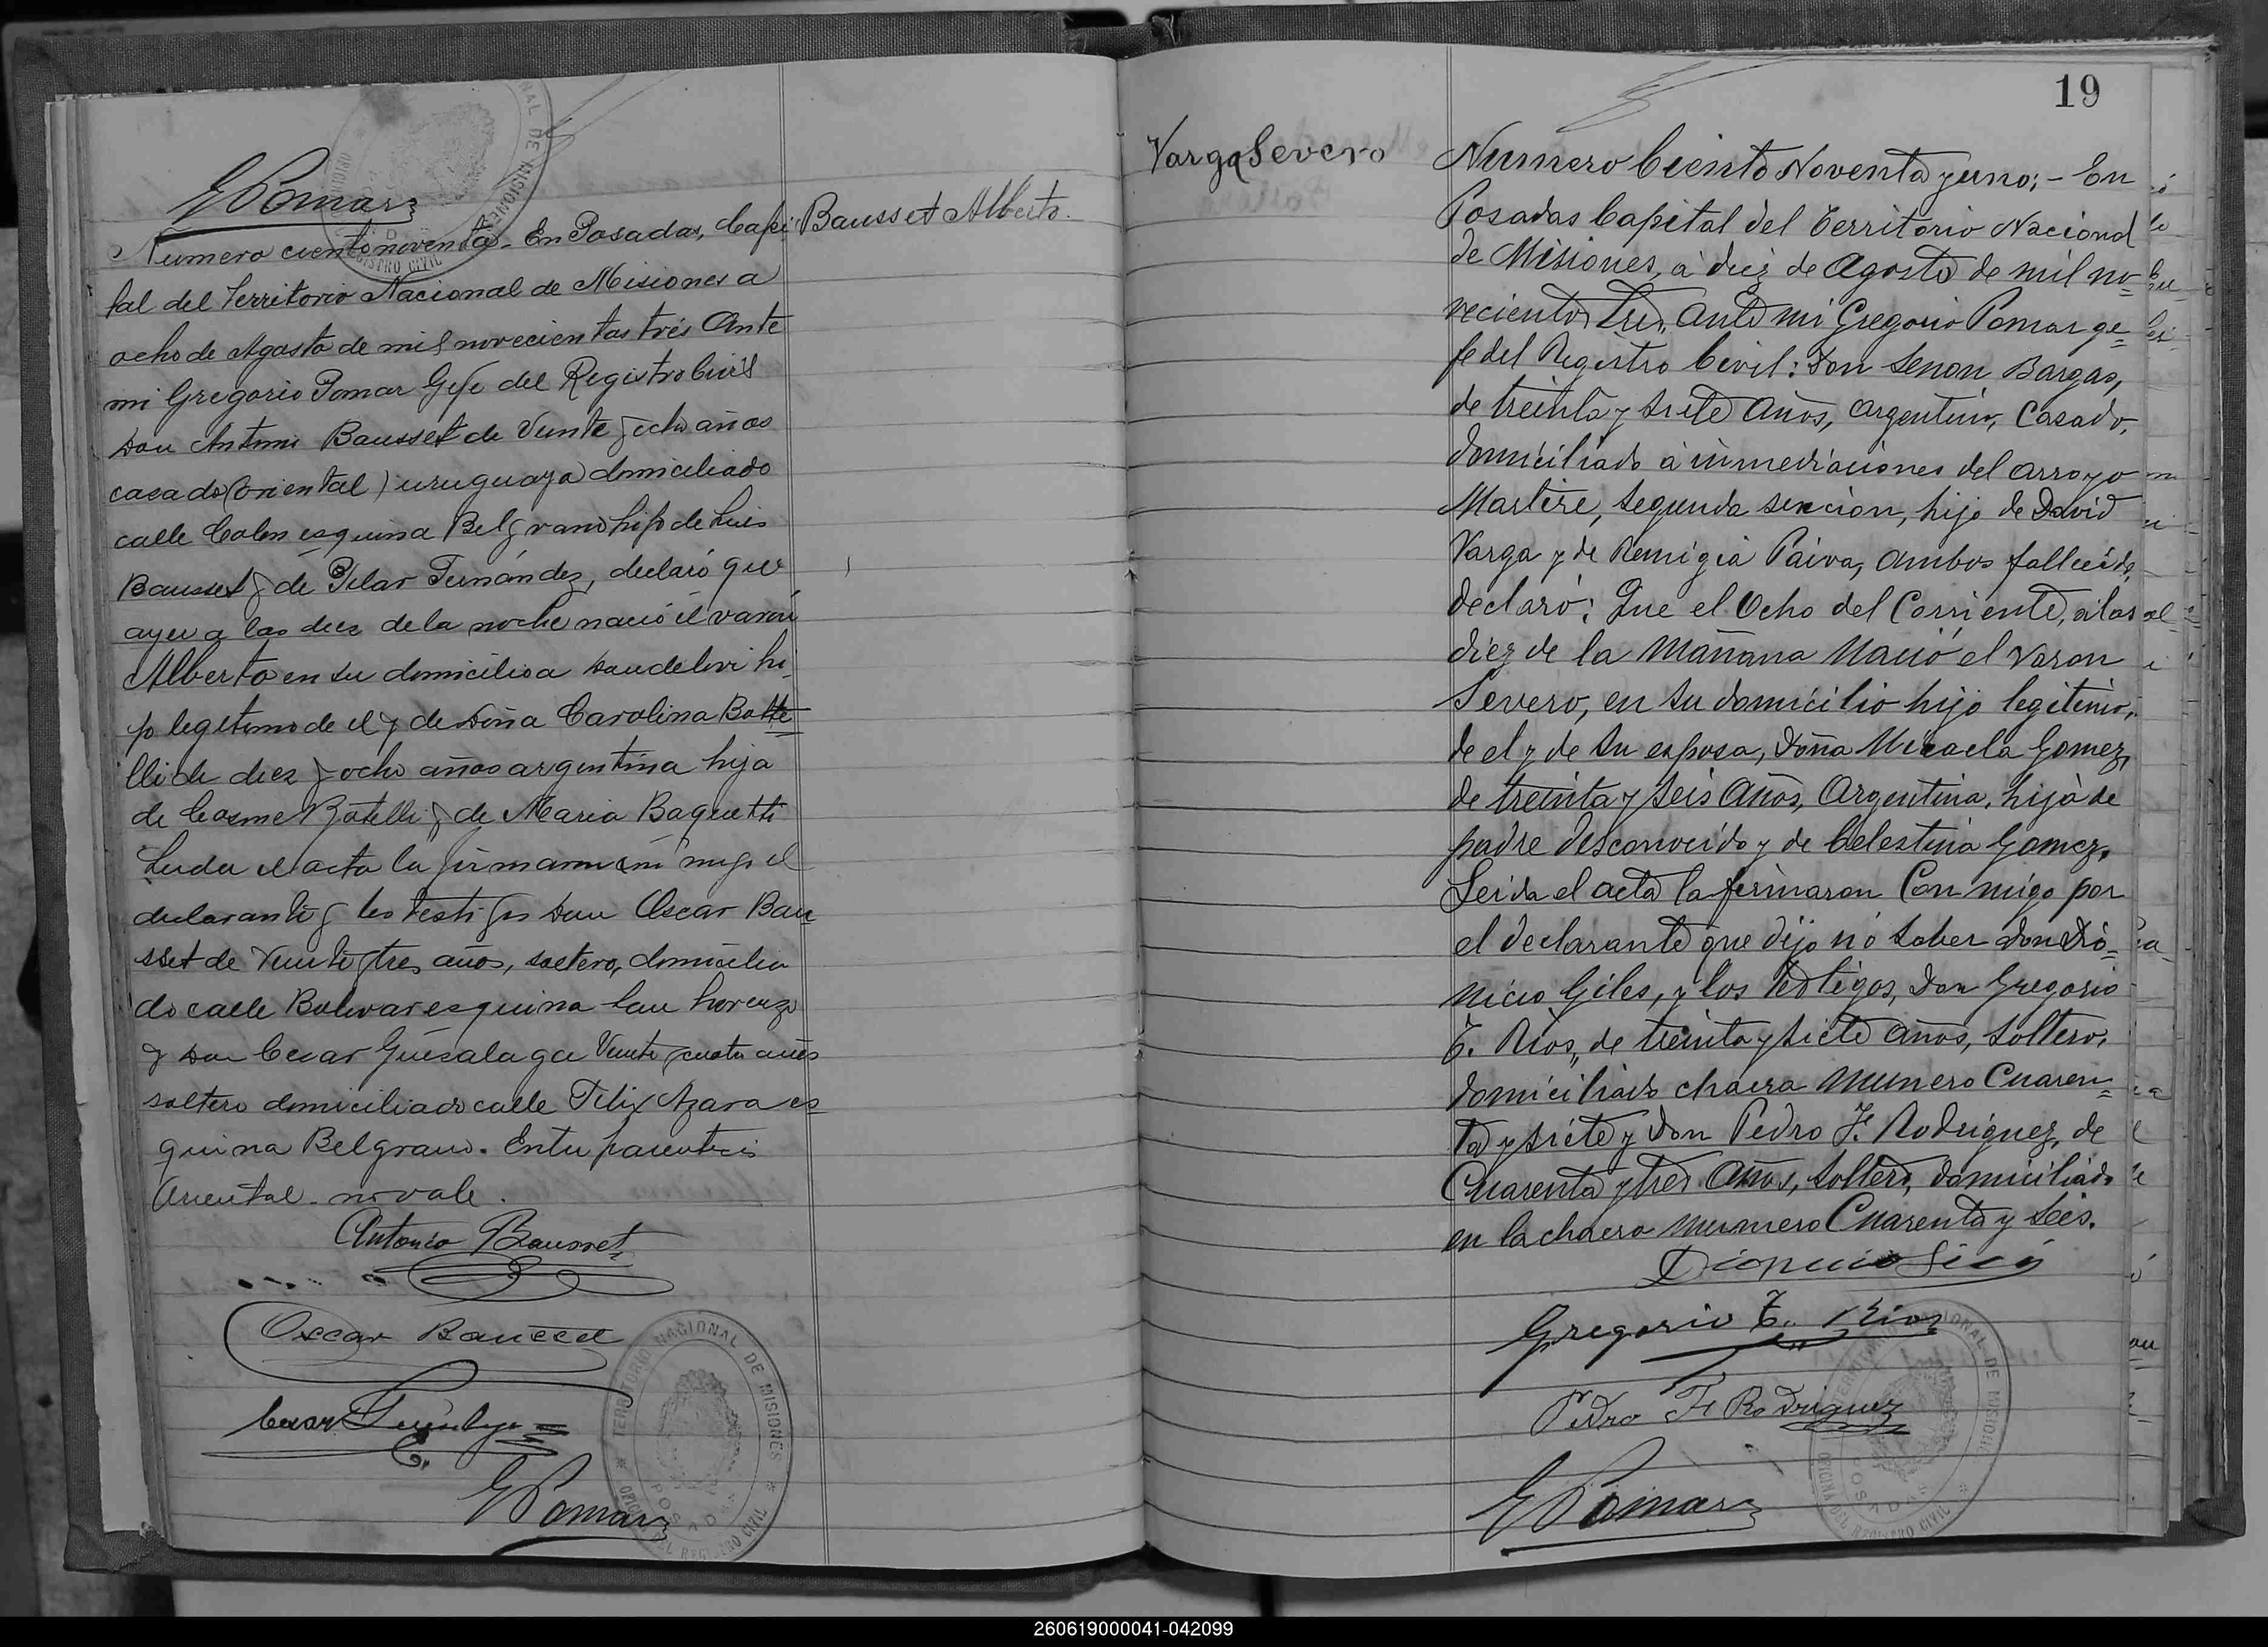 GPomar
Numero ciento noventa - En Posadas, Capi
Bausset Alberto.
tal del Territorio Nacional de Misiones a
ocho de Agosto de mil novecientos trés Ante
mi Gregorio Pomar Gefe del Registro Civil
Don Antonio Bausset de Veinte y ocho años
casado (oriental) uruguayo domiciliado
calle Colon esquina Belgrano hijo de Luis
Bausset y de Pilar Fernández, declaró que
ayer a las diez de la noche nació el varon
Alberto en su domicilio a hi
jo legitimo de el y de Doña Carolina Botte
lli de diez y ocho años argentina hija
de Cosme Botelli y de Maria Baquetti
Leida el acta la firmaron con migo el
declarante y los testigos Don Oscar Bau
sset de Veinte y tres años, soltero, domicilia
do calle Bolivar esquina San Lorenzo
y Don Cesar Guesalaga Veinte y cuatro años
soltero domiciliado calle Felix Azara es
quina Belgrano. Entre parentesis
Oriental - no vale.
Antonio Bausset
Oscar Bausset
Cesar
GPomar
TERRITORIO NACIONAL DE MISIONES
OFICINA DEL REGISTRO CIVIL
POSADAS
19
Varga Severo
Numero Ciento Noventa y uno; - En
Posadas Capital del Territorio Nacional
de Misiones, á diez de Agosto de mil no=
vecientos tres, ante mi Gregorio Pomar ge=
fe del Registro Civil: Don Senon Bargas,
de treinta y siete años, Argentino, Casado,
domiciliado á inmediaciones del arroyo
Martire, segunda sección, hijo de David
Varga y de Remigia Paiva, ambos fallecido,
declaró: Que el Ocho del Corriente, á las
diez de la Mañana Nació el Varon
Severo, en su domicilio hijo legitimo,
de el y de su esposa, Doña Micaela Gomez,
de treinta y seis años, Argentina, hija de
padre desconocido y de Celestina Gomez.
Leida el acta la firmaron Con migo por
el declarante que dijo nó saber Don Dio=
nicio Giles, y los testigos, Don Gregorio
T. Rios, de treinta y siete años, soltero,
domiciliado chacra Numero Cuaren=
ta y siete y Don Pedro F. Rodriguez, de
Cuarenta y tres años, soltero, domiciliado
en la chacra Numero Cuarenta y Seis.
Gregorio T. Rios
Pedro F. Rodriguez
GPomar
260619000041-042099